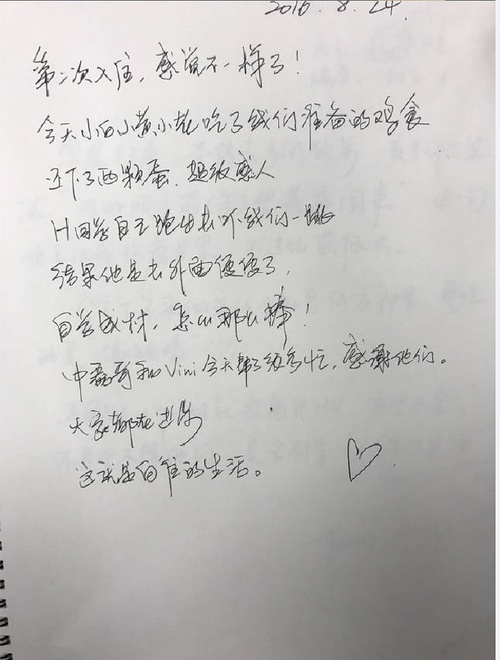 2016.8.24.
第二次入住，感觉不一样了！
今天小白小黄小花吃了我们准备的鸡食
还下了两颗蛋．超级感人
H同学自己跑出去吓我们一跳
结果他是去外面便便了，
自学成材，怎么那么棒！
中磊哥和Vini今天帮了很多忙，感谢他们。
大家都在进步
这就是向往的生活。